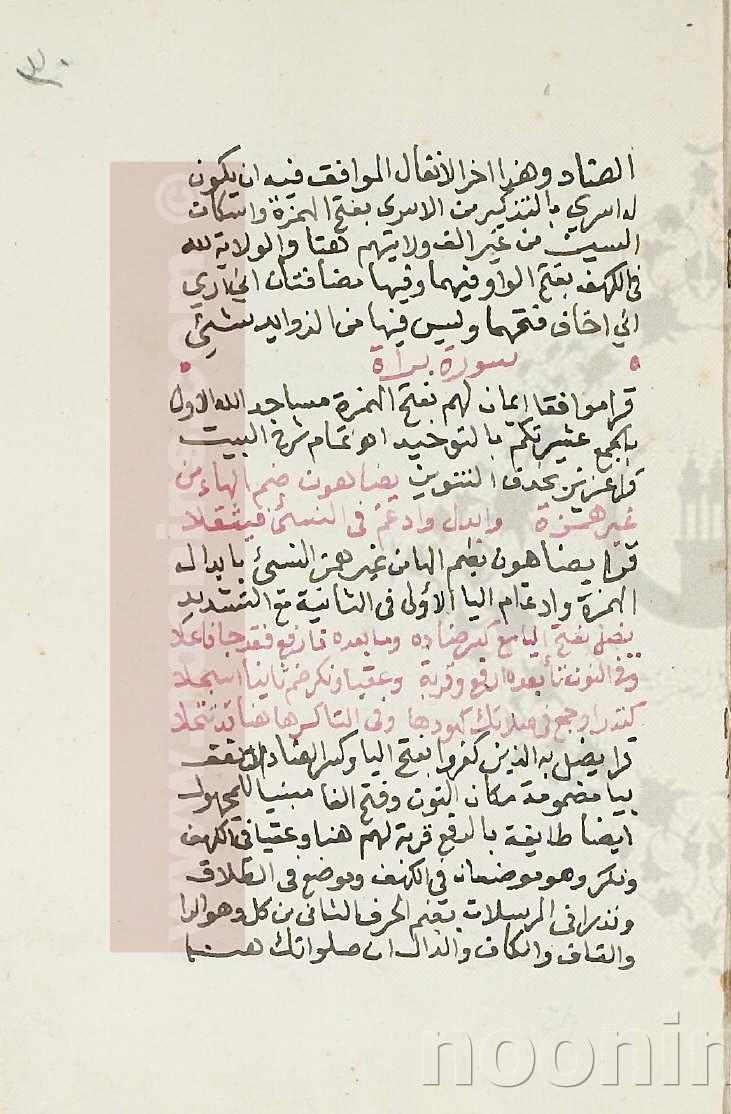 ٣٠
الضاد وهذا اخر الانفال الموافق فيه ان يكون
له اسري بالتذكير من الاسرى بفتح الهمزة واسكان
السين من غير الف ولايتهم هنا والولاية لله
في الكهف بفتح الواو فيهما وفيها مضافتان اني اري
اني اخاف فتحهما وليس فيها من الزوايد شيئ
سورة براة
قرا موافقا ايمان لهم بفتح الهمزة مساجد الله الاول
بالجمع عشيرتكم بالتوحيد اهو تمام شرح البيت
قرا عزير بحذف التنوين يضاهون ضم الهاء من
غير همزة وابدل وادغم في النسئ فيثقلا
قرا يضاهون بضم الها من غير همز النسئ بابدال
الهمزة وادغام اليا الاولى في الثانية مع التشديد
يضل بفتح اليا مع كسر ضاده وما بعده فارفع فقد جا فاعلا
وفي النون بعده ارفع وقربة وعقبا ونكر ضم ثانيا اسجلا
كنذرا وجمع في صلاتك هودها وفي التا كسرها هنا قد
قرا يضل به الذين كفروا بفتح اليا وكسر الضاد ان نعف
بيا مضمومة مكان النون وفتح الفا مبنيا للمجهول
ايضا طايفة بالرفع قربة لهم هنا وعقبا في الكهف
ونكر وهو موضعان في الكهف وموضع في الطلاق
ونذرا في المرسلات بضم الحرف الثاني من كل وهو الرا
والقاف والكاف والذال ان صلواتك هنا
noonin